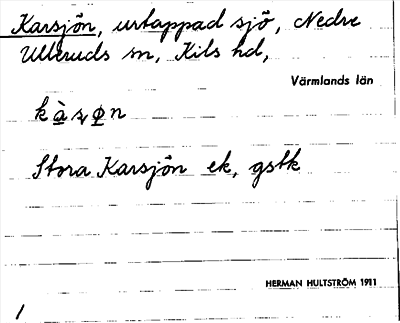 Karsjön, urtappad sjö, Nedre
Ulleruds sn, Kils hd,
Värmlands län
Stora Karsjön ek, gstk
HERMAN HULTSTRÖM 1911
1